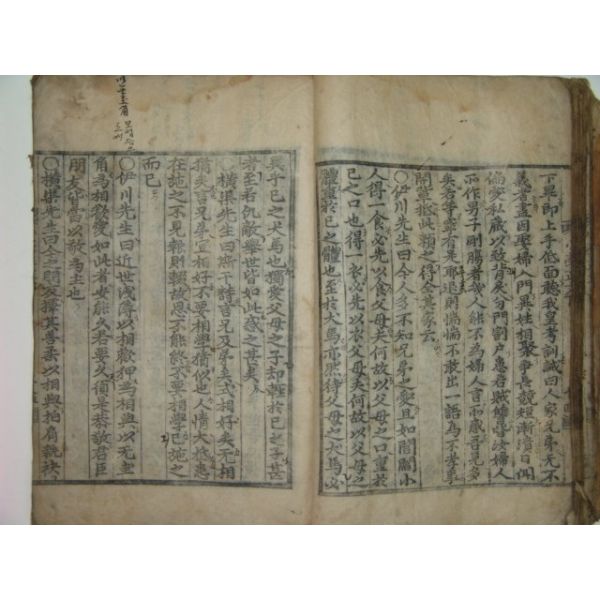 下畢即上手低面聽我皇考訓誡曰人家兄弟无不
義者盡因娶婦入門異姓相聚爭長競短漸漬日聞
偏愛私藏以致背戾分門割戶患若賊讎皆汝婦人
所作男子剛腸者幾人能不為婦人言所惑吾見多
矣若等寧有是耶退則惴惴不敢出一語為不孝事
開輩抵此賴之得全其家云
○伊川先生曰今人多不知兄弟之愛且如閭閻小
人得一食必先以食父母夫何故以父母之口重於
己之口也得一衣必先以衣父母夫何故以父母之
體重於己之體也至於犬馬亦然待父母之犬馬必
異乎己之犬馬也獨愛父母之子却輕於己之子甚
者至若仇敵擧世皆如此惑之甚矣
○橫渠先生曰斯干詩言兄及弟矣式相好矣无相
猶矣言兄弟宜相好不要相學猶似也人情大抵患
在施之不見報則輟故恩不能終不要相學己施之
而已
○伊川先生曰近世淺薄以相歡狎為相與以无圭
角為相歡愛如此者安能久若要久須是恭敬君臣
朋友皆當以敬為主也
○橫渠先生曰今之朋友擇其善柔以相與拍肩執袂